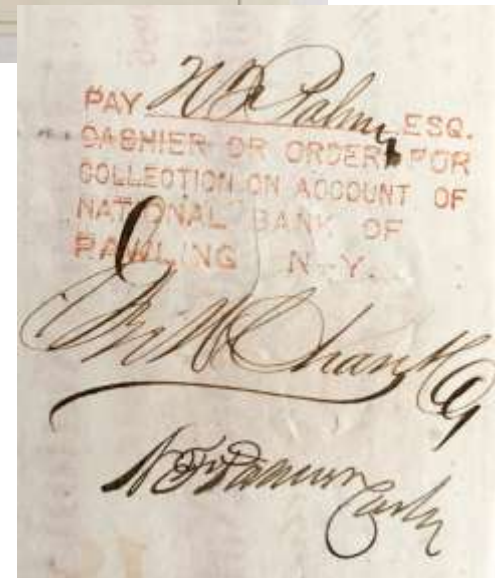 PAY W B Palmer ESQ.
CASHIER OR ORDER FOR
COLLECTION ON ACCOUNT OF
NATIONAL BANK OF
PAWLING N-Y.
J W
Cashr